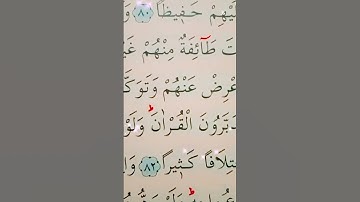 لَيْهِمْ حَفٖيظًا ﴿٨٠﴾ وَ
تَ طَآئِفَةٌ مِنْهُمْ غَيْ
عْرِضْ عَنْهُمْ وَتَوَكَّ
دَبَّرُونَ الْقُرْاٰنَ وَلَوْ
تِلَافًا كَثٖيرًا ﴿٨٢﴾ وَا